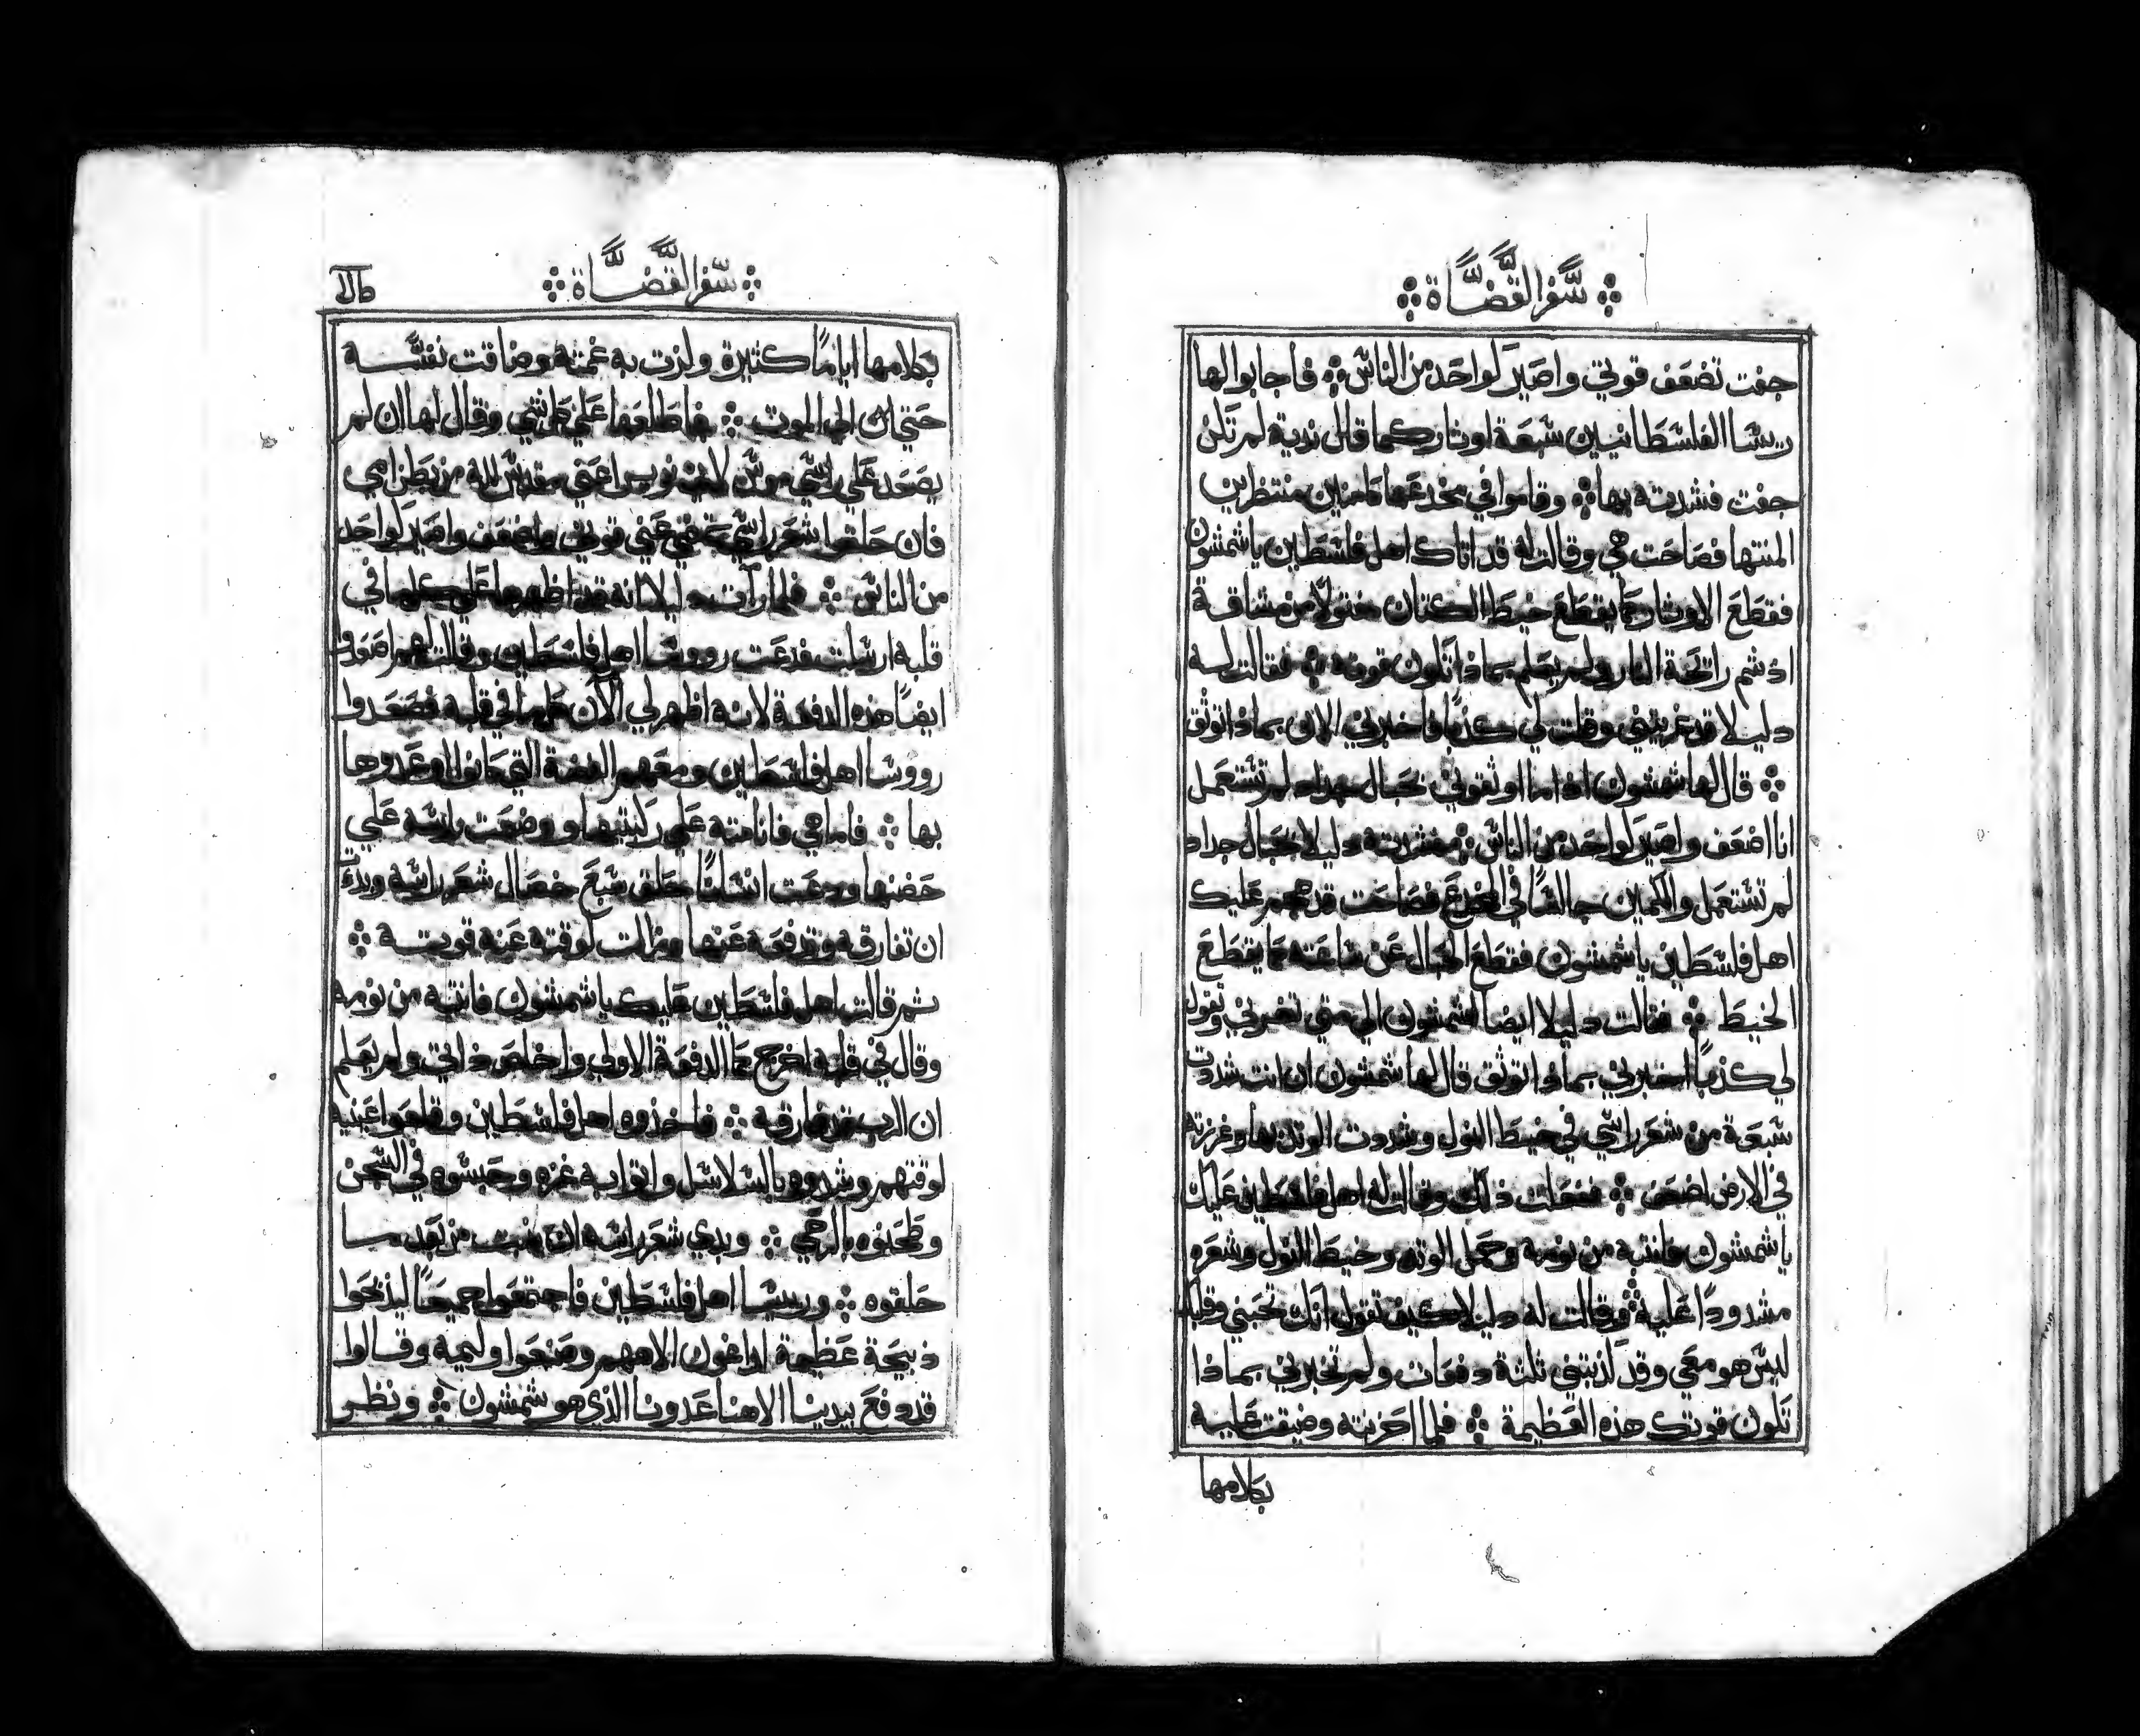 سفر القضاة
جفت تضعف قوتي واصير كواحد من الناس ۞ فاجابوا لها
ريسا الفلسطانيين سبعة اوتار كما قال ندية لم تكن
جفت فشدته بها ۞ وقاموا في مخدعها كامنين منتظرين
المنتها فصاحت هي وقالت له قد اتاك اهل فلسطين ياشمشون
فقطع الاوتار كما يقطع خيط الكتان مفتولا من مشاقة
اذ شم رائحة النار ولم يعلم بماذا تكون قوته ۞ فقالت له
دليلا قد غريتني وقلت لي كذبا فاخبرني الان بماذا توثق
۞ قال لها شمشون اذا ما اوثقوني بحبال جداد لم تستعمل
انا اضعف واصير كواحد من الناس ۞ فشدته دليلا بحبال جداد
لم تستعمل والكمين جالسا في المخدع فصاحت قد هجم عليك
اهل فلسطين ياشمشون فقطع الحبال عن ساعته كما يقطع
الخيط ۞ فقالت دليلا ايضا لشمشون الي متي تغرني وتقول
لي كذبا اخبرني بماذا توثق قال لها شمشون ان انت شددت
سبعة من شعر راسي في خيط النول وشددت الوتد بها وغرزته
في الارض اضعف ۞ ففعلت ذلك وقالت له اهل فلسطين عليك
ياشمشون فانتبه من نومه وحمل الوتد وخيط النول وشعره
مشدودا عليه ۞ وقالت له دليلا كيف تقول انك تحبني وقلبك
ليس هو معي وقد كذبتني ثلثة دفعات ولم تخبرني بماذا
تكون قوتك هذه العظيمة ۞ فلما احزنته وضيقت عليه
بكلامها
سفر القضاة
بكلامها اياما كثيرة ولزت به غمته وضاقت نفسه
حتي الي الموت ۞ فاطلعها علي كل شي وقال لها ان لم
يصعد علي راسي موس لاني اعني مقدس لله من بطن امي
فان حلقوا شعر راسي عني قوتي واضعف واصير كواحد
من الناس ۞ فلما رات دليلا انه قد اظهر لها علي كلما في
قلبه ارسلت فدعت رووسا اهل فلسطين وقالت لهم اصعدوا
ايضا هذه الدفعة لانه اظهر لي الان كلما في قلبه فصعدوا
رووسا اهل فلسطين ومعهم الفضة التي كانوا اوعدوها
بها ۞ فاما هي فانامته علي ركبتيها ووضعت راسه علي
حضنها ودعت انسانا حلق سبع خصال شعر راسه وبدت
ان تفارقه وتدفعه عنها وزالت لوقته عنه قوته ۞
ثم قالت اهل فلسطين عليك ياشمشون فانتبه من نومه
وقال في قلبه اخرج كما الدفعة الاولي واخلص ذاتي ولم يعلم
ان الرب قد فارقه ۞ فاخذوه اهل فلسطين وقلعوا عينيه
لوقتهم وشدوه بالسلاسل واتوا به غزه وحبسوه في السجن
وطحنوه بالرحي ۞ وبدي شعر راسه ان ينبت من بعد ما
حلقوه ۞ وريسا اهل فلسطين فاجتمعوا جميعا ليذبحوا
ذبيحة عظيمة لداغون الاههم وصنعوا وليمه وقالوا
قد دفع بيدينا الاهنا عدونا الذي هو شمشون ۞ ونظر